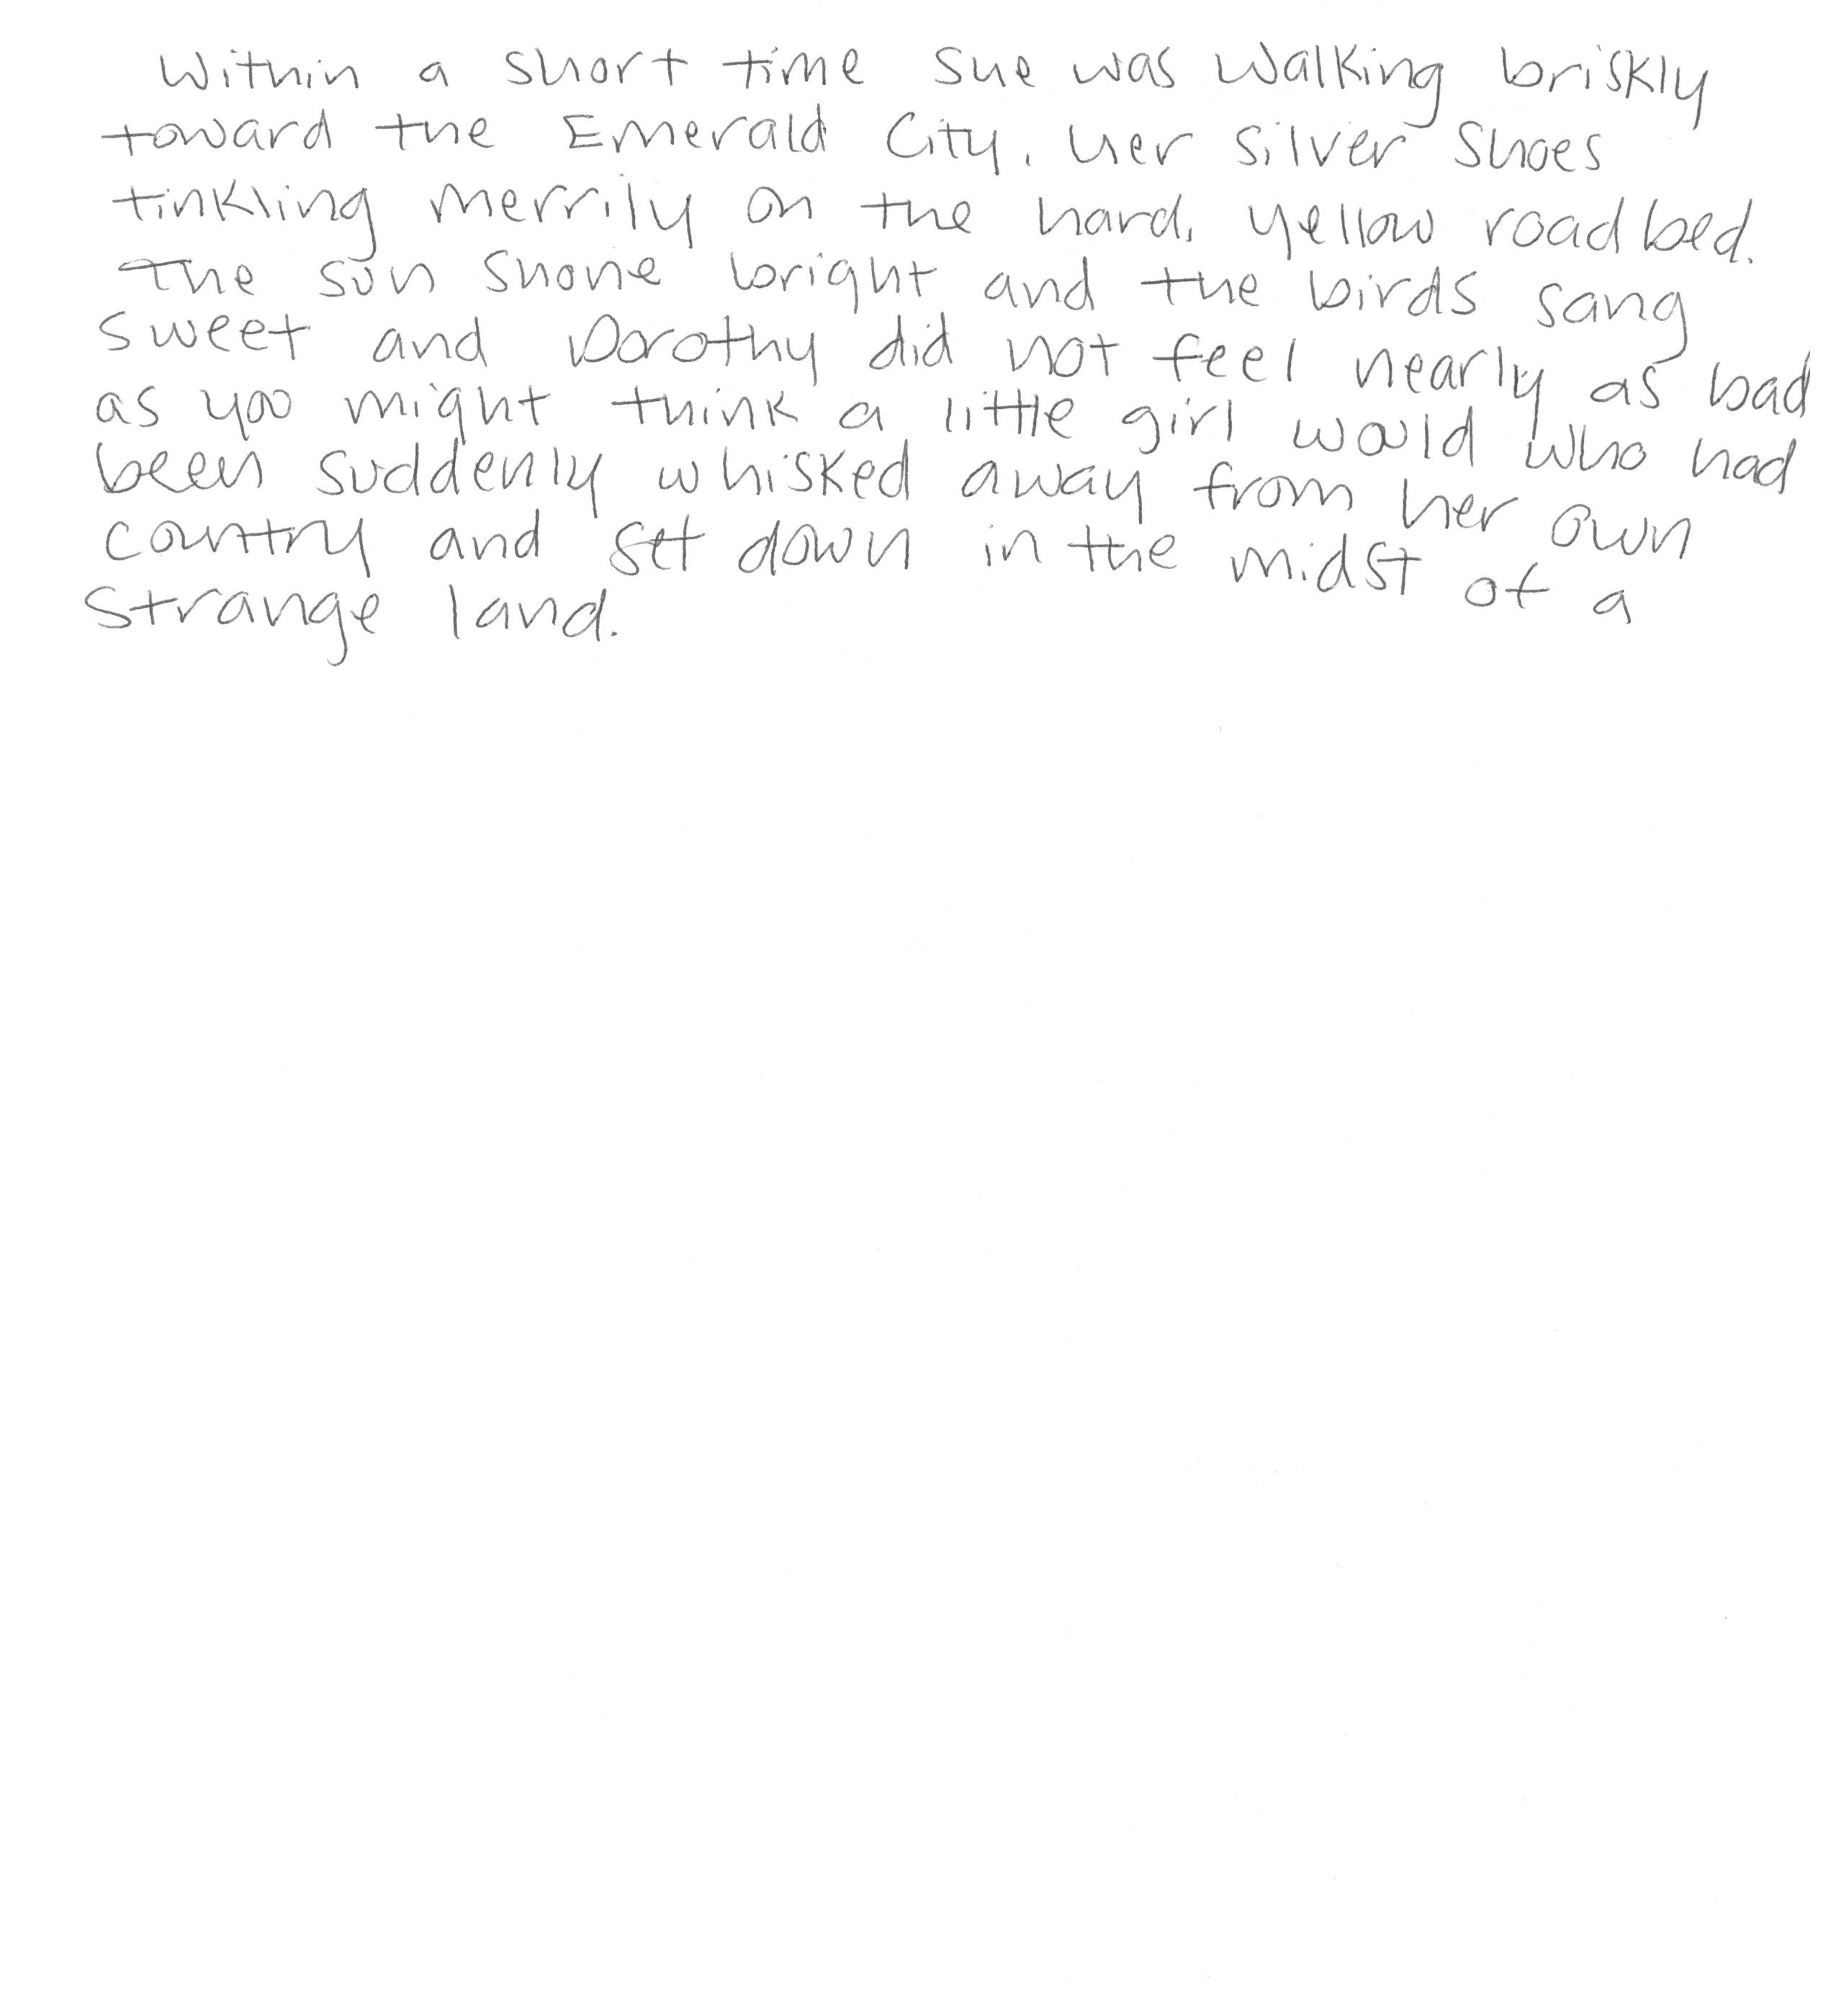 Within a short time she was walking briskly
toward the Emerald City, her silver shoes
tinkling merrily on the hard, yellow roadbed.
The sun shone bright and the birds sang
sweet and Dorothy did not feel nearly as bad
as you might think a little girl would who had
been suddenly whisked away from her own
country and set down in the midst of a
strange land.